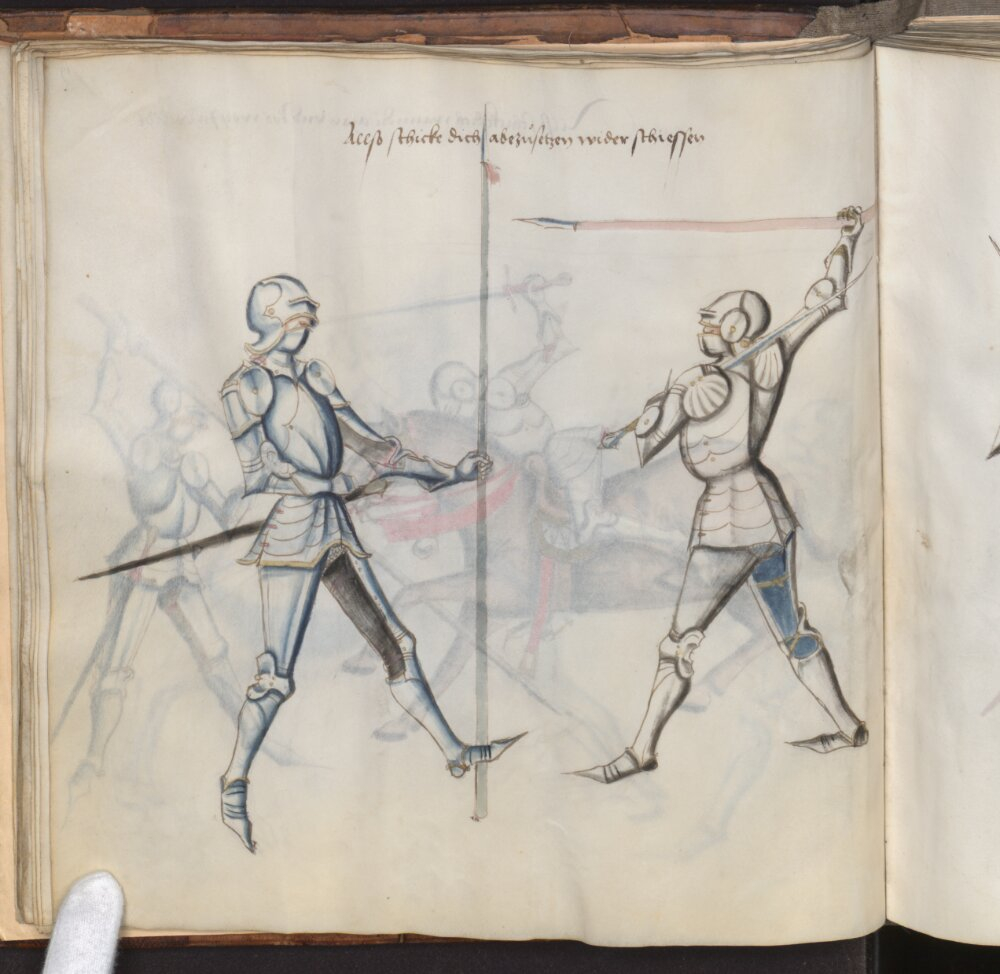 Allso schicke dich abezusetzen wider schiessen